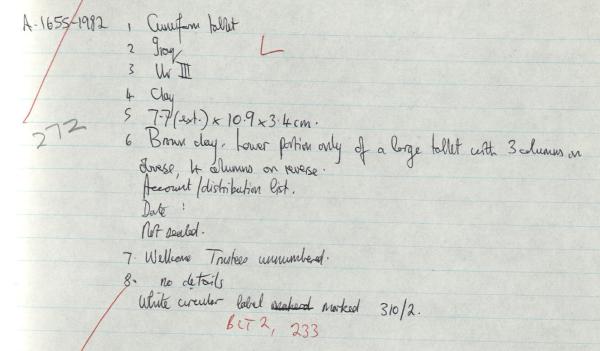 A.1655-1982 1 Cuneiform tablet
2 Iraq
3 Ur III
4 Clay
272
5 7.7 (ext.) x 10.9 x 3.4 cm.
6 Brown clay. Lower portion only of a large tablet with 3 columns on
obverse, 4 columns on reverse.
Account/distribution list.
Date :
Not sealed.
7. Wellcome Trustees unnumbered.
8. no details
White circular label marked 310/2.
BCT 2, 233